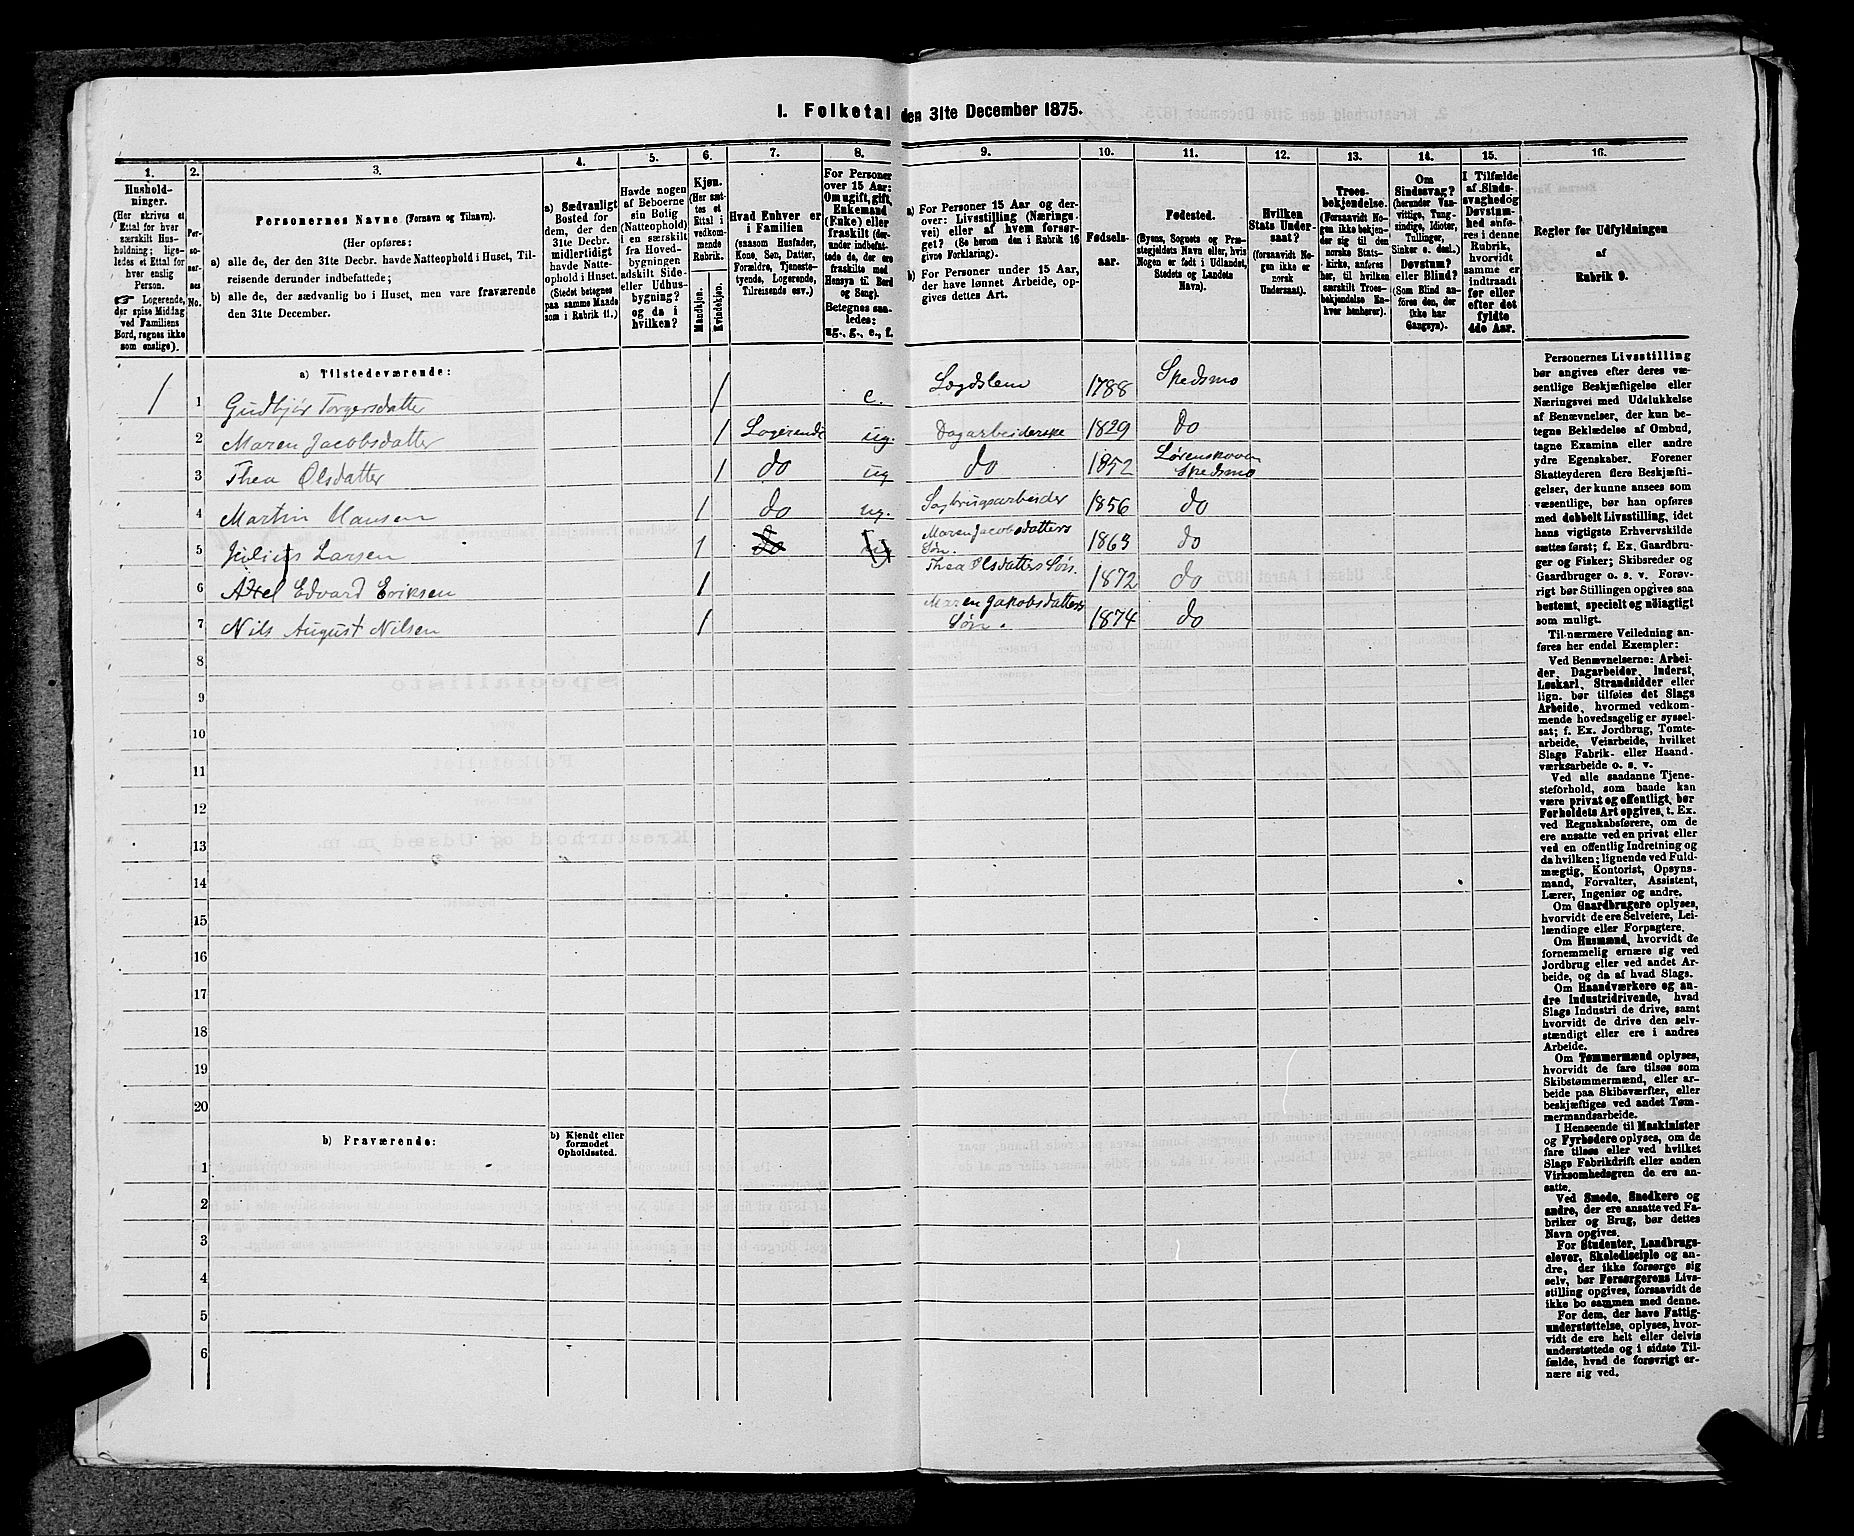 1. Folketal den 31te December 1875.
1.
2.
3.
4.
5.
6.
7.
8.
9.
10.
11.
12.
13.
14.
15.
16.
Hushold-
ninger.
(Her skrives et
Ettal for hver
særskilt Hus-
holdning; lige-
ledes et Ettal for
hver enslig
Person.
☞ Logerende,
der spise Middag
ved Familiens
Bord, regnes ikke
som enslige).
Per-
so-
ner-
nes
No.
Personernes Navne (Fornavn og Tilnavn).
(Her opføres:
a) alle de, der den 31te Decbr. havde Natteophold i Huset, Til-
reisende derunder indbefattede;
b) alle de, der sædvanlig bo i Huset, men vare fraværende
den 31te December.
a) Sædvanligt
Bosted for
dem, der den
31te Decbr.
midlertidigt
havde Natte-
ophold i Huset.
(Stedet betegnes
paa samme Maade
som i Rubrik 11.)
Havde nogen
af Beboerne
sin Bolig
(Natteophold)
i en særskilt
fra Hoved-
bygningen
adskilt Side-
eller Udhus-
bygning?
og da i
hvilken?
Kjøn.
(Her sæt-
tes et
Ettal i
vedkom-
mende
Rubrik.
Mandkjøn.
Kvindekjøn.
Hvad Enhver er
i Familien
(saasom Husfader,
Kone, Søn, Datter,
Forældre, Tjeneste-
tyende, Logerende,
Tilreisende osv.)
For Personer
over 15 Aar:
Om ugift, gift,
Enkemand
(Enke) eller
fraskilt (der-
under indbefat-
tede de, der ere
fraskilte med
Hensyn til Bord
og Seng).
Betegnes saa-
ledes:
ug., g., e., f.
a) For Personer 15 Aar og der-
over: Livsstilling (Nærings-
vei) eller af hvem forsør-
get? (Se herom den i Rubrik 16
givne Forklaring).
b) For Personer under 15 Aar,
der have lønnet Arbeide, op-
gives dettes Art.
Fødsels-
aar.
Fødested.
(Byens, Sognets og Præ-
stegjeldets Navn eller, hvis
Nogen er født i Udlandet,
Stedets og Landets
Navn).
Hvilken
Stats Under-
saat?
(forsaavidt No-
gen ikke er
norsk
Undersaat).
Troes-
bekjendelse.
(Forsaavidt No-
gen ikke bekjen-
der sig til den
norske Stats-
kirke, anføres
her, til hvilken
særskilt Troes-
bekjendelse En-
hver henhører).
Om
Sindssvag?
(herunder Van-
vittige, Tung-
sindige, Idioter,
Tullinger,
Sinker o. desl.)
Døvstum?
eller Blind?
(Som Blind an-
føres den, der
ikke har
Gangsyn).
I Tilfælde
af Sinds-
svaghed og
Døvstum-
hed anfø-
res i denne
Rubrik,
hvorvidt
samme er
indtraadt
før eller
efter det
fyldte
4de Aar.
Regler for Udfyldningen
af
Rubrik 9.
a) Tilstedeværende:
1 1 Gudbjør Torgersdatter 1 e. Lægdslem 1788 Skedsmo
2 Maren Jacobsdatter 1 Logerende ug. Dagarbeiderske 1829 do
3 Thea Olsdatter 1 do ug do 1852 Lørenskoven Skedsmo
4 Martin Hansen 1 do ug. Sagbrugsarbeider 1856 do
5 Julius Larsen 1 do ug Maren Jacobsdatters Søn. 1863 do
6 Axel Edvard Eriksen 1 Thea Olsdatters Søn. 1872 do
7 Nils August Nilsen 1 Maren Jakobsdatters Søn. 1874 do
8
9
10
11
12
13
14
15
16
17
18
19
20
b) Fraværende:
b) Kjendt eller
formodet
Opholdssted.
1
2
3
4
5
6
Personernes Livsstilling
bør angives efter deres væ-
sentlige Beskjæftigelse eller
Næringsvei med Udelukkelse
af Benævnelser, der kun be-
tegne Beklædelse af Ombud,
tagne Examina eller andre
ydre Egenskaber. Forener
Skatteyderen flere Beskjæfti-
gelser, der kunne ansees som
væsentlige, bør han opføres
med dobbelt Livsstilling, idet
hans vigtigste Erhvervskilde
sættes først; f. Ex. Gaardbru-
ger og Fisker; Skibsreder og
Gaardbruger o. s. v. Forøv-
rigt bør Stillingen opgives saa
bestemt, specielt og nøiagtigt
som muligt.
Til nærmere Veiledning an-
føres her endel Exempler:
Ved Benævnelserne: Arbei-
der, Dagarbeider, Inderst,
Løskarl, Strandsidder eller
lign. bør tilføies det Slags
Arbeide, hvormed vedkom-
mende hovedsagelig er syssel-
sat; f. Ex. Jordbrug, Tomte-
arbeide, Veiarbeide, hvilket
Slags Fabrik- eller Haand-
værksarbeide o. s. v.
Ved alle saadanne Tjene-
steforhold, som baade kan
være privat og offentligt, bør
Forholdets Art opgives, t. Ex.
ved Regnskabsførere, om de
ere ansatte ved en privat eller
ved en offentlig Indretning og
da hvilken; lignende ved Fuld-
mægtig, Kontorist, Opsyns-
mand, Forvalter, Assistent,
Lærer, Ingeniør og andre.
Om Gaardbrugere oplyses,
hvorvidt de ere Selveiere, Lei-
lændinge eller Forpagtere.
Om Husmænd, hvorvidt de
fornemmelig ernære sig ved
Jordbrug eller ved andet Ar-
beide, og da af hvad Slags.
Om Haandværkere og an-
dre Industridrivende, hvad
Slags Industri de drive, samt
hvorvidt de drive den selv-
stændigt eller ere i andres
Arbeide.
Om Tømmermænd oplyses,
hvorvidt de fare tilsøs som
Skibstømmermænd, eller ar-
beide paa Skibsværfter, eller
beskjæftiges ved andet Tøm-
mermandsarbeide.
I Henseende til Maskinister
og Fyrbødere oplyses, om de
fare tilsøs eller ved hvilket
Slags Fabrikdrift eller anden
Virksomhedsgren de ere an-
satte.
Ved Smede, Snedkere og
andre, der ere ansatte ved Fa-
briker og Brug, bør dettes
Navn opgives.
For Studenter, Landbrugs-
elever, Skoledisciple og an-
dre, der ikke forsørge sig
selv, bør Forsørgerens Livs-
stilling opgives, forsaavidt de
ikke bo sammen med denne.
For dem, der have Fattig-
understøttelse, oplyses, hvor-
vidt de ere helt eller delvis
understøttede og i sidste Til-
fælde, hvad de forøvrigt er-
nære sig ved.